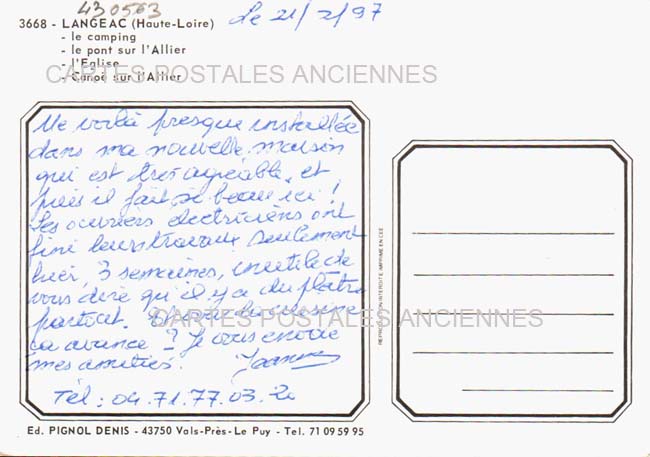 430563
3668 - LANGEAC (Haute-Loire)
Le 21/2/97
- le camping
- le pont sur l'Allier
- l'Eglise
- Canoë sur l'Allier
CARTES POSTALES ANCIENNES
Me voilà presque installée
dans ma nouvelle maison
qui est très agréable, et
puis il fait si beau ici !
Les ouvriers électriciens ont
fini leurs travaux seulement
hier, 3 semaines, inutile de
vous dire qu'il y a du plâtre
partout.
CARTES POSTALES ANCIENNES
ça avance ? Je vous envoie
mes amitiés.
Tél : 04.71.77.03.
REPRODUCTION INTERDITE IMPRIME EN CEE
Ed. PIGNOL DENIS - 43750 Vals-Près-Le Puy - Tel. 71 09 59 95